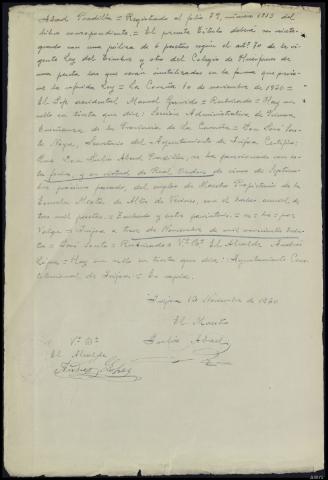 Abad Pradilla = Registrado al folio 29, número 1913 del
libro correspondiente. = El presente Título deberá ser reinte-
grado con una póliza de 6 pesetas según el artº 70 de la vi-
gente Ley del Timbre y otro del Colegio de Huérfanos de
una peseta los que serán inutilizados en la forma que previe-
ne la referida Ley = La Coruña 10 de noviembre de 1920 =
El Jefe accidental Manuel = Rubricado = Hay un
sello en tinta que dice: Sección Administrativa de Primera
Enseñanza de la Provincia de La Coruña = Don José
Secretario del Ayuntamiento de Certifico:
Que Don Julio Abad Pradilla, se ha posesionado con es-
ta fecha, y en virtud de Real Orden de cinco de Septiem-
bre próximo pasado, del empleo de Maestro Propietario de la
Escuela Mixta de con el haber anual de
tres mil pesetas. = Enmendado y entre paréntesis = es = ha = por
Valga = a trece de Noviembre de mil novecientos vein-
te = José = Rubricado = Vº Bº El Alcalde Andrés
López = Hay un sello en tinta que dice: Ayuntamiento Cons-
titucional de = Es copia.
13 Noviembre de 1920
El Maestro
Julio Abad
Vº Bº
El Alcalde
López